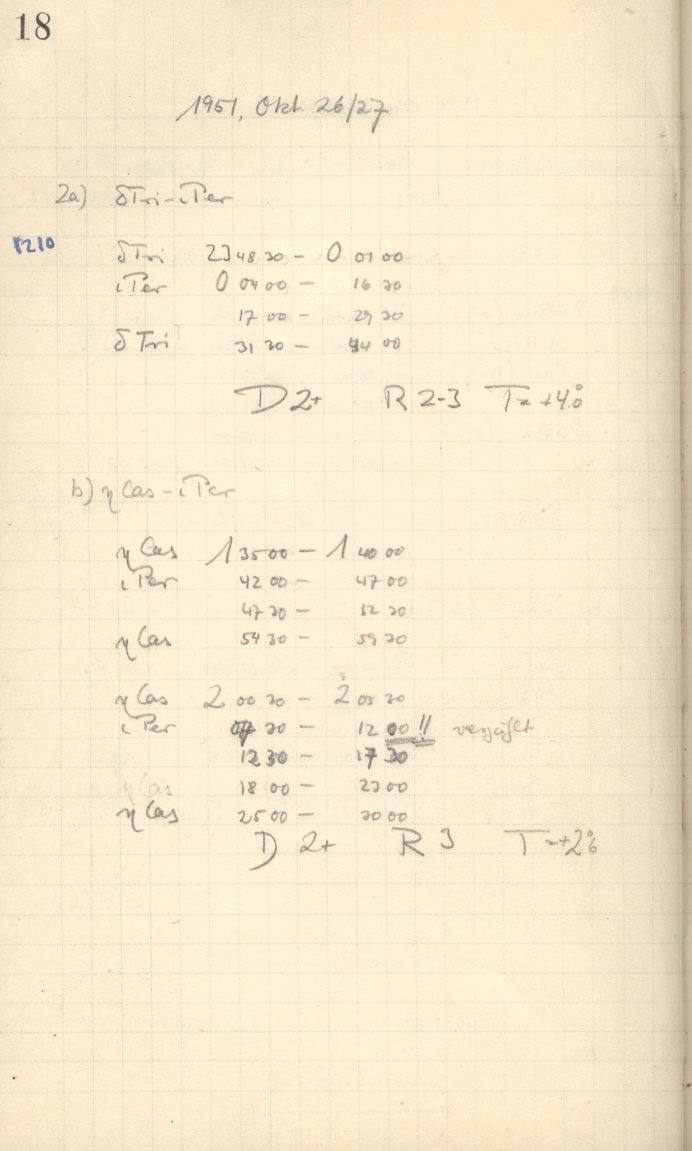 18
1951, Okt 26/27
2a) δTri-ιPer
1210
δTri 23 48 30 - 0 01 00
ιPer 0 04 00 - 16 30
17 00 - 29 30
δTri 31 30 - 44 00
D 2+ R 2-3 T= +4.°0
b) ηCas-ιPer
ηCas 1 35 00 - 1 40 00
ιPer 42 00 - 47 00
47 30 - 52 30
ηCas 54 30 - 59 30
ηCas 2 00 30 - 2 05 30
ιPer 07 30 - 12 00 !! verzählt
12 30 - 17 30
ηCas 18 00 - 23 00
ηCas 25 00 - 30 00
D 2+ R 3 T=+2.°6